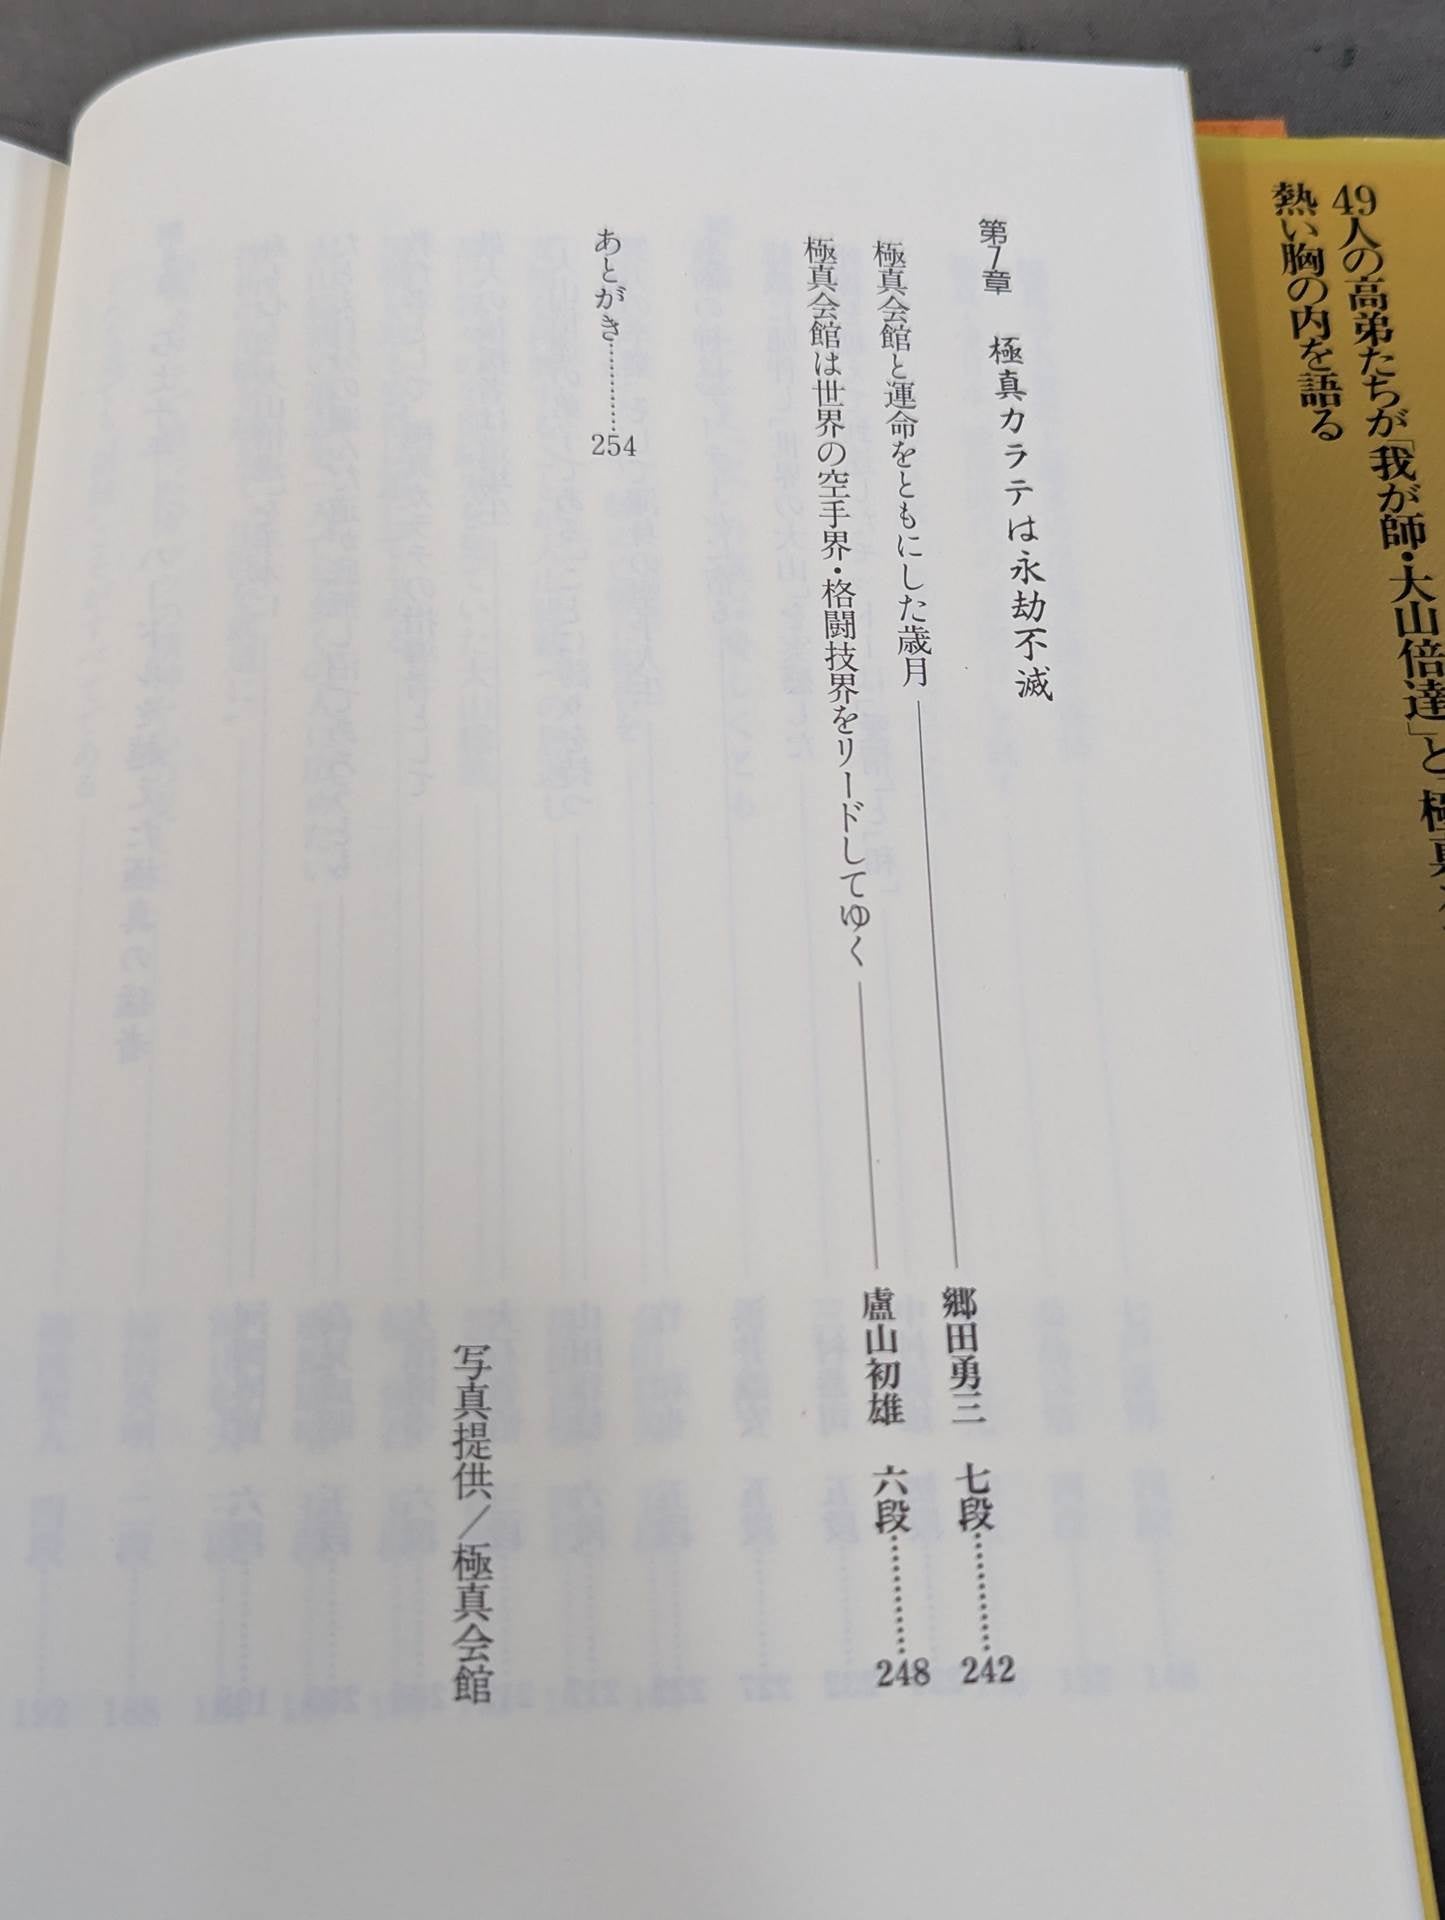 49人の高弟たちが「我が師・大山倍達」と極真
熱い胸の内を語る
第7章 極真カラテは永劫不滅
極真会館と運命をともにした歳月 郷田勇三 七段…………242
極真会館は世界の空手界・格闘技界をリードしてゆく 盧山初雄 六段…………248
あとがき…………254
写真提供/極真会館